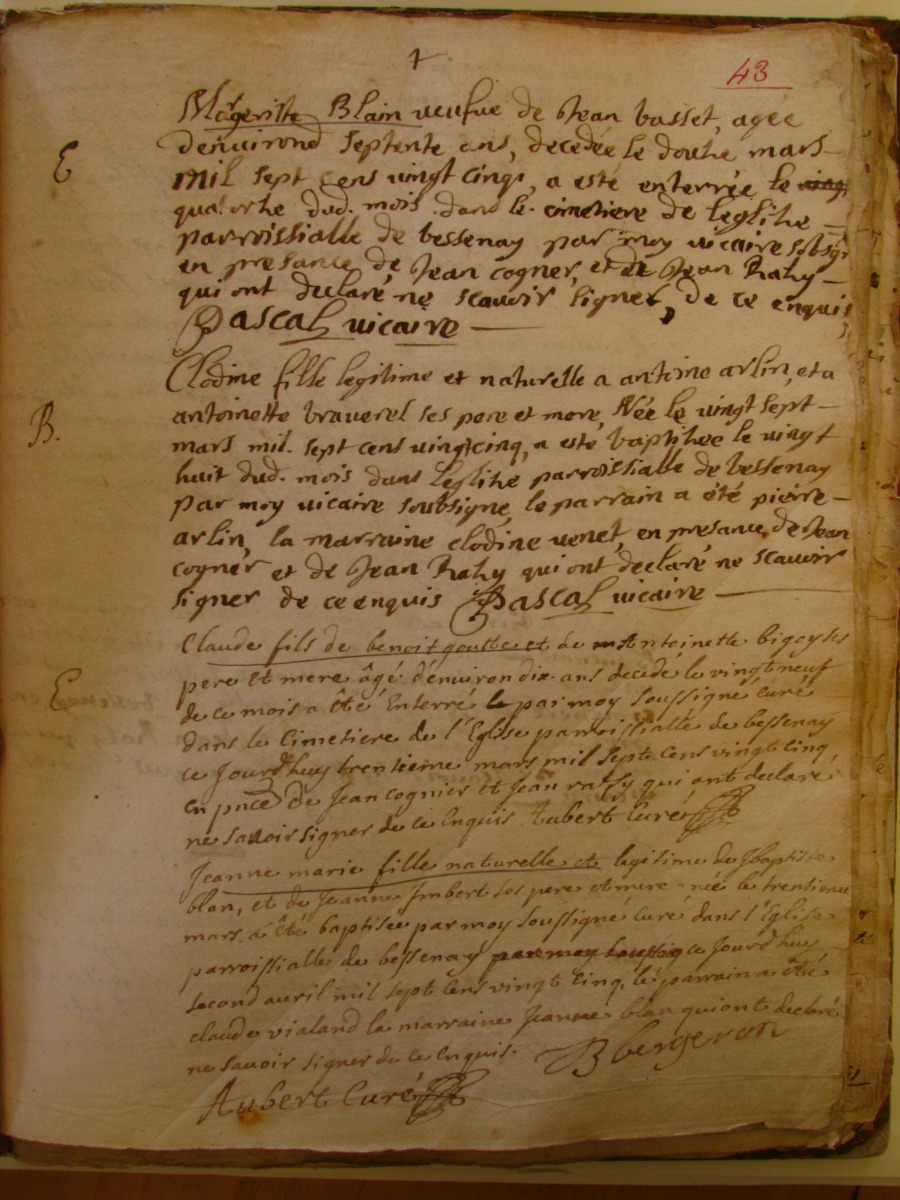 43
E
Margeritte Blain veufue de Jean basset, agée
denuirond septente ans, decedée le douhe mars
mil sept cens vingt cinq, a esté enterrée le
quatorhe dud. mois dans le cimetiere de leglihe
parroissialle de bessenay par moy vicaire sobsigné
en presance de Jean cogner, et de Jean Rahy
qui ont declaré ne scauoir signer, de ce enquis
Pascal vicaire
B.
Clodine fille legitime et naturelle a antoine arlin, et a
antoinette braverel ses pere et mere, Née le vingt sept
mars mil sept cens vingtcinq, a esté baptihée le vingt
huit dud. mois dans leglihe parroissialle de bessenay
par moy vicaire soubsigné, le parrain a été pierre
arlin, la marraine clodine venet, en presance de Jean
cogner et de Jean Rahy qui ont declaré ne scauoir
signer de ce enquis Pascal vicaire
E
Claude fils de benoit goutte et de Antoinette bigey ses
pere et mere âgé d'enuiron dix ans decedé le vingt neuf
de ce mois a êté Enterré par moy soussigné curé
dans le Cimetiere de l'Eglise parroissialle de bessenay
ce Jourdhuy trentieme mars mil sept cens vingt cinq
en pnce de Jean cognier et Jean rathy qui ont declaré
ne savoir signer de ce Enquis. Aubert Curé
Jeanne marie fille naturelle et legitime de Jbaptiste
blan, et de Jeanne Jmbert ses pere et mere née le trentieme
mars, a êté baptisée par moy soussigné Curé dans l'Eglise
parroissialle de bessenay par moy soussig ce Jourdhuy
second auril mil sept cens vingt cinq, le parrain a êté
claude vialand la marraine Jeanne blan qui ont declaré
ne savoir signer de ce Enquis. B bergeron
Aubert Curé